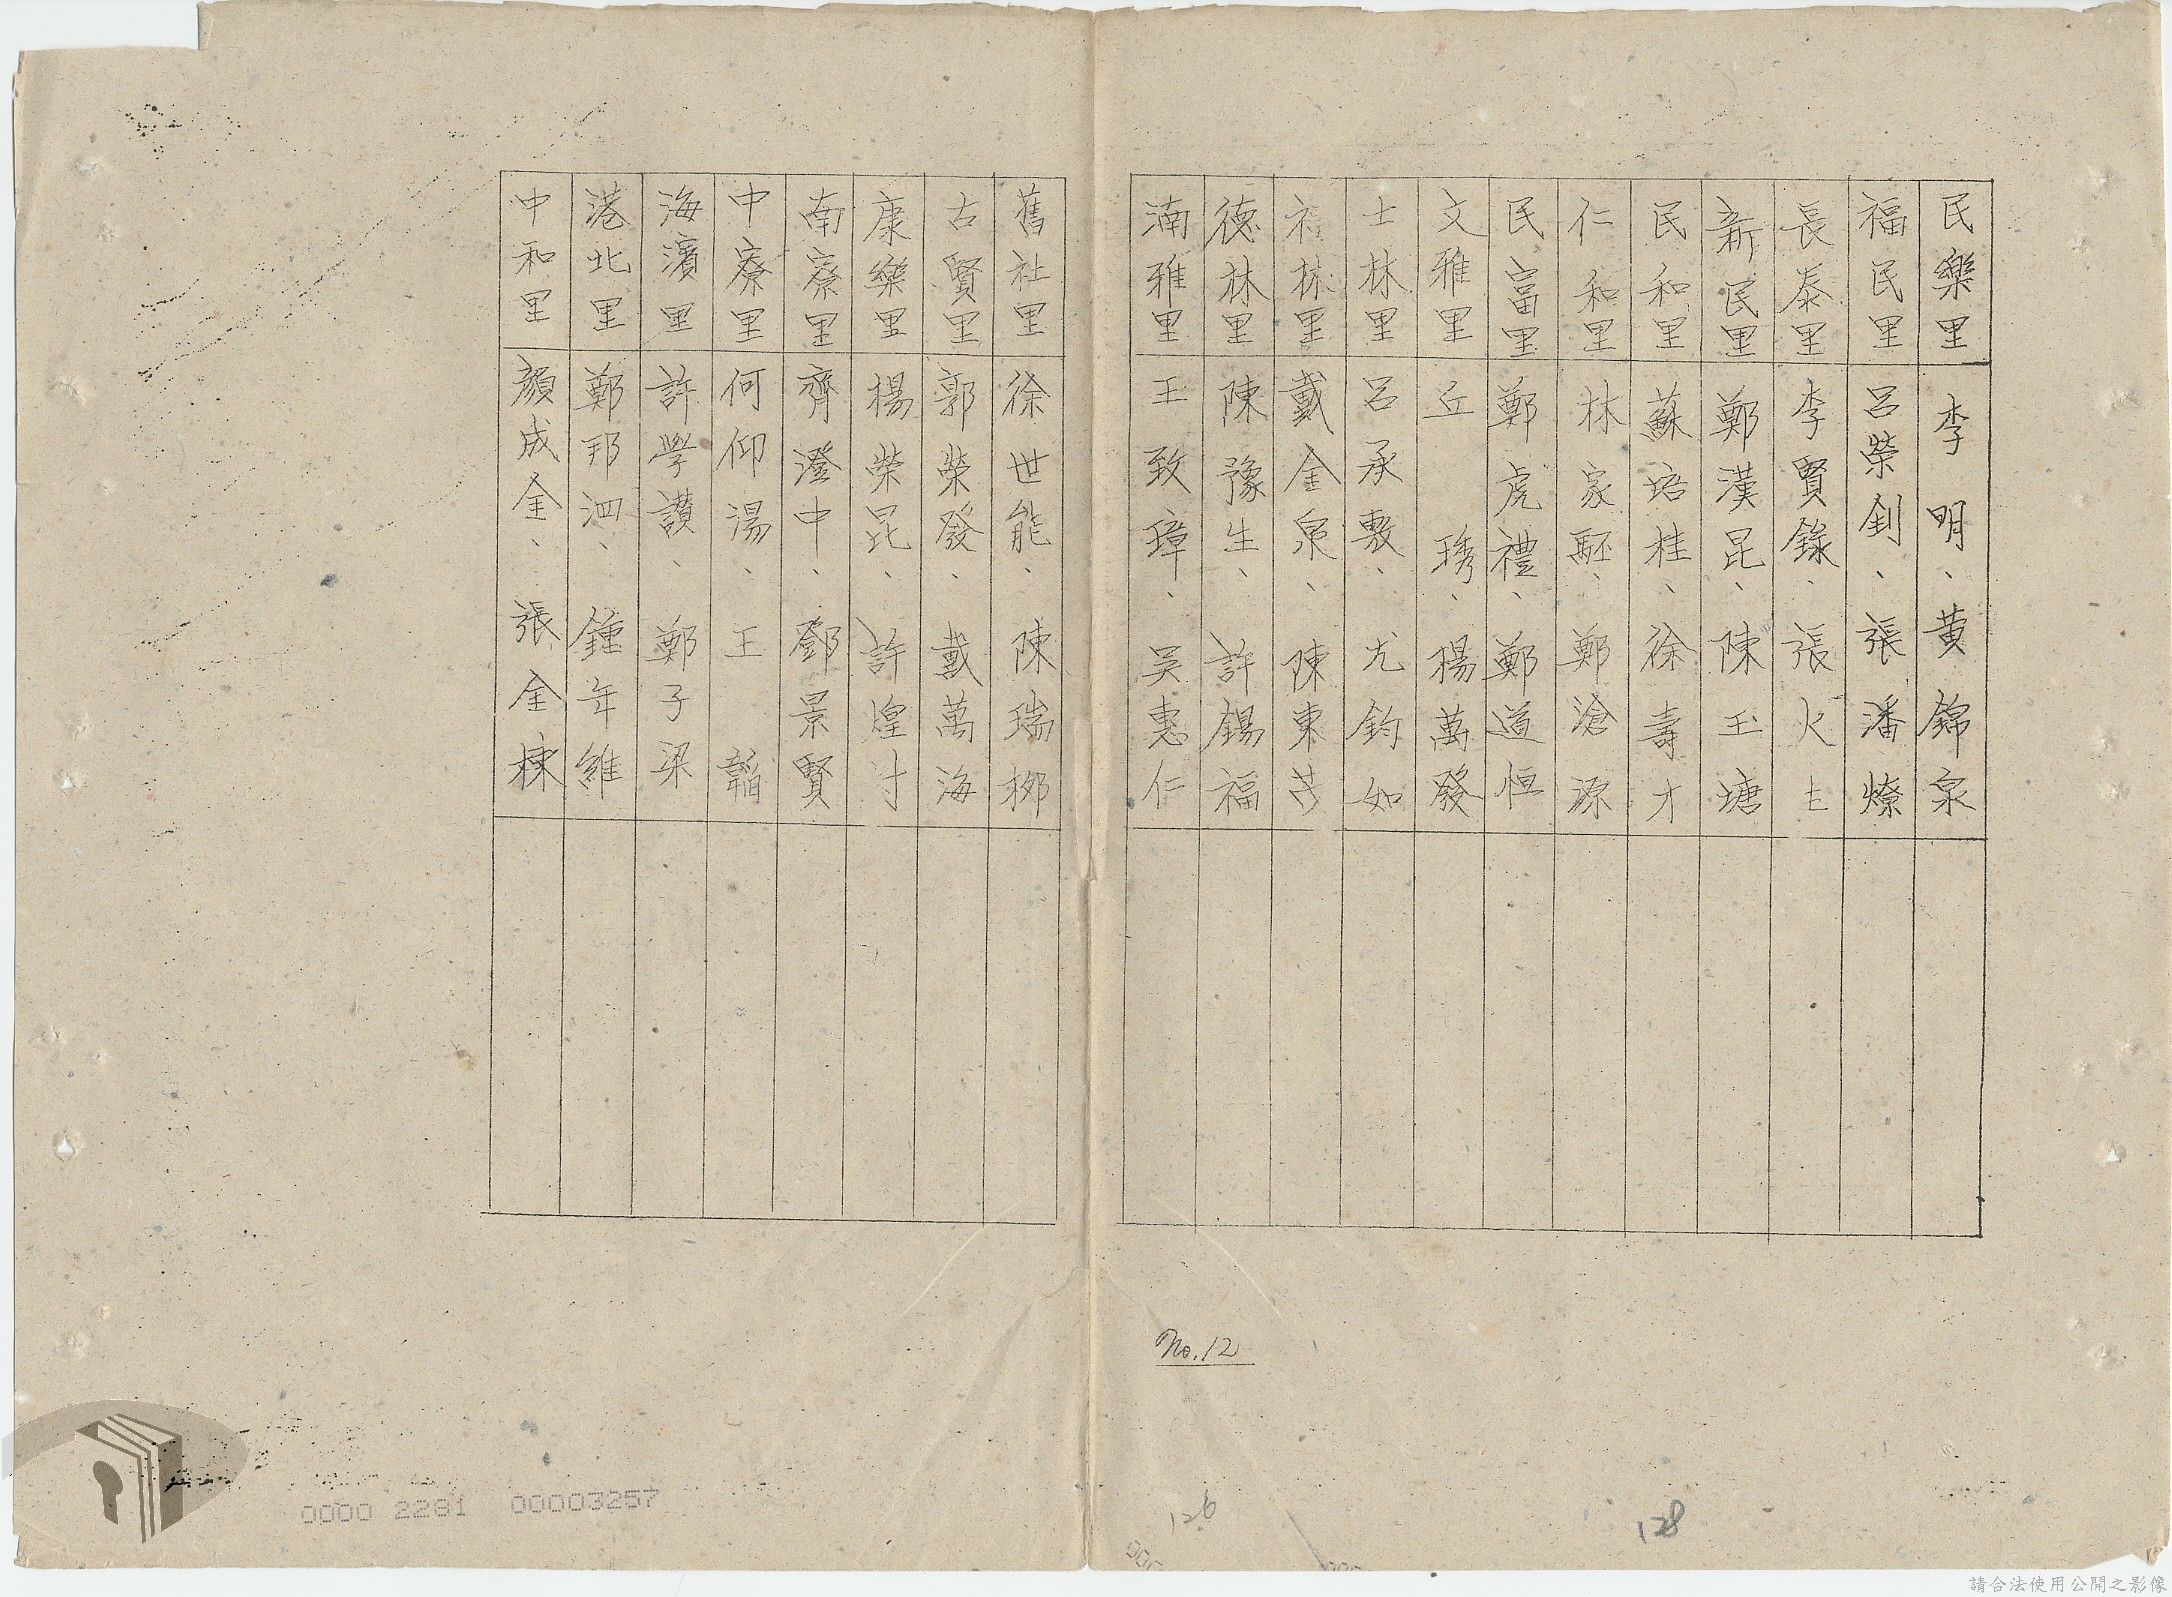 民樂里 李明、黃錦泉
福民里 呂榮釗、張潘燎
長泰里 李賢錄、張火土
新民里 鄭漢昆、陳玉塘
民和里 蘇培桂、徐壽才
仁和里 林家駓、鄭滄源
民富里 鄭虎禮、鄭道恒
文雅里 丘琇、楊萬發
士林里 呂承敷、尤鈞如
林里 戴金泉、陳東芳
德林里 陳豫生、許錫福
湳雅里 王致璋、吴惠仁
舊社里 徐世能、陳瑞梛
古賢里 郭榮發、戴萬海
康樂里 楊榮昆、許煌寸
南寮里 齊澄中、鄧景賢
中寮里 何仰湯、王韜
海濱里 許學讚、鄭子梁
港北里 鄭邦泗、鍾年維
中和里 顏成金、張金棟
No.12
126
128
0000 2281 00003257
請合法使用公開之影像